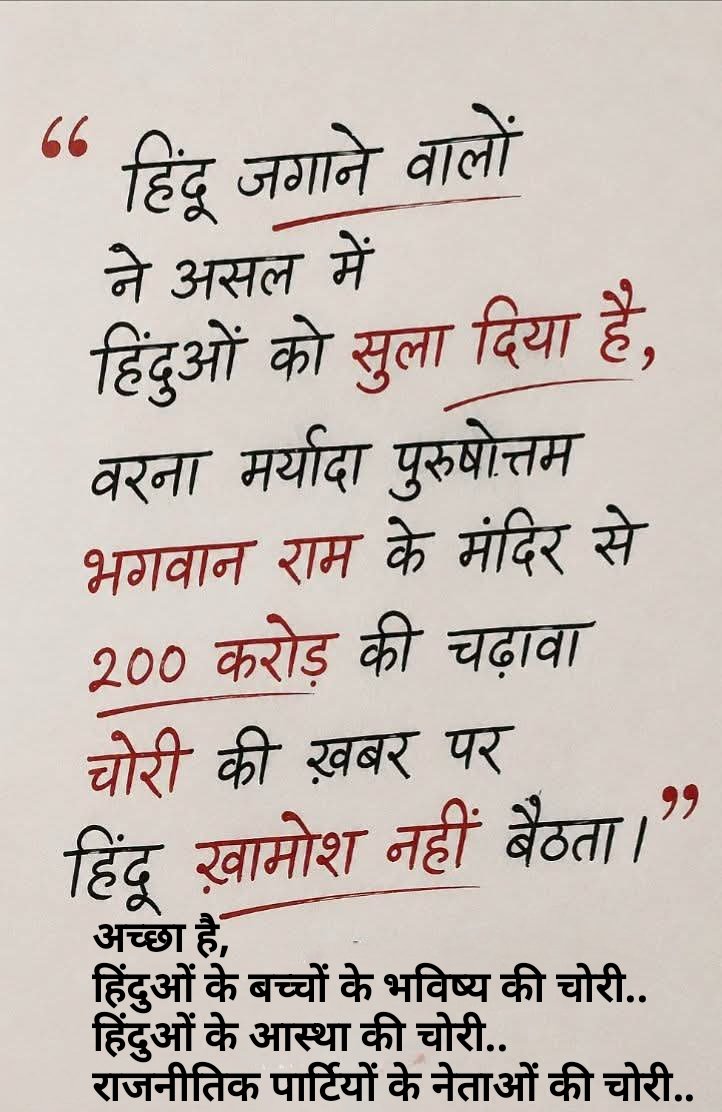 “ हिंदू जगाने वालों
ने असल में
हिंदुओं को सुला दिया है,
वरना मर्यादा पुरुषोत्तम
भगवान राम के मंदिर से
200 करोड़ की चढ़ावा
चोरी की ख़बर पर
हिंदू ख़ामोश नहीं बैठता। ”
अच्छा है,
हिंदुओं के बच्चों के भविष्य की चोरी..
हिंदुओं के आस्था की चोरी..
राजनीतिक पार्टियों के नेताओं की चोरी..